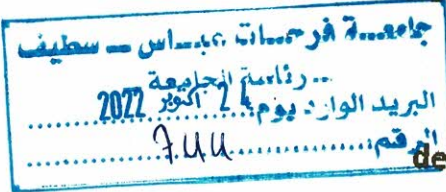 جامعـــة فرحـــات عبـــاس ــ سطيف
رئاسة الجامعة
البريد الوارد يوم: 24 أكتوبر 2022
الرقم:
de